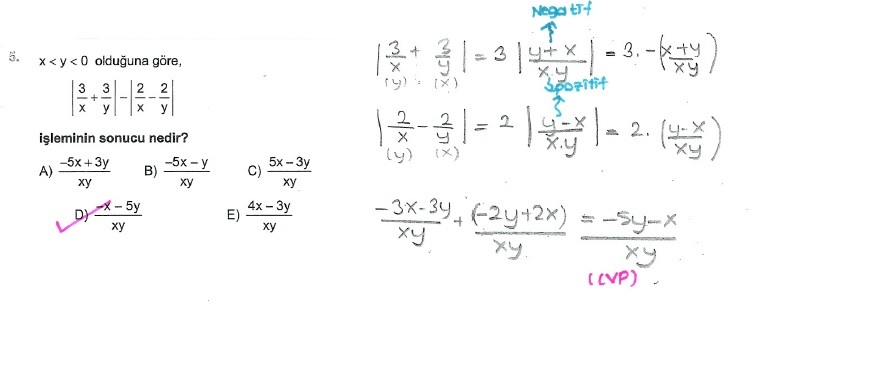 5. x < y < 0 olduğuna göre,
|3/x + 3/y| - |2/x - 2/y|
işleminin sonucu nedir?
A) (-5x + 3y)/xy B) (-5x - y)/xy C) (5x - 3y)/xy
D) (-x - 5y)/xy E) (4x - 3y)/xy
Negatif
|3/x + 3/y| = 3 |(y + x)/(x.y)| = 3. -((x+y)/xy)
(y) (x)
pozitif
|2/x - 2/y| = 2 |(y - x)/(x.y)| = 2. ((y-x)/xy)
(y) (x)
(-3x-3y)/xy + (-2y+2x)/xy = (-5y-x)/xy
(CVP)